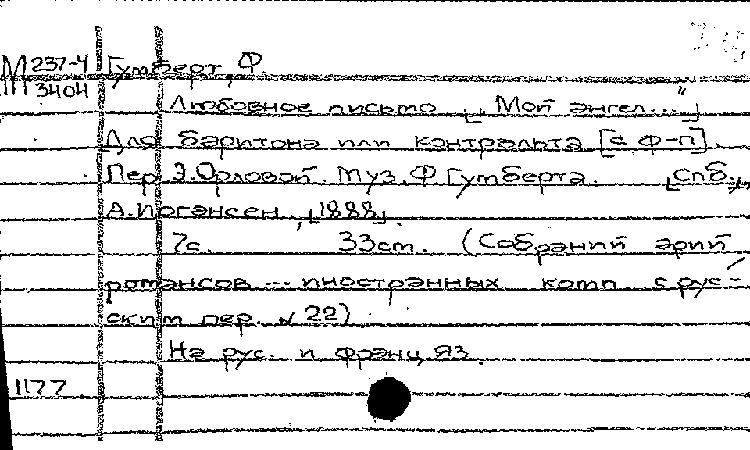 М 237-4 Гумберт, Ф
3404
Любовное письмо ["Мой ангел..."]
Для баритона или контральта [с ф-п].
Пер Э.Орловой Муз. Ф Гумберта. [Спб.,
А.Иогансен, [1888].
7с. 33см. (Собраний арий
романсов ... иностранных комп с рус-
ским пер. № 22)
На рус. и франц яз.
1177